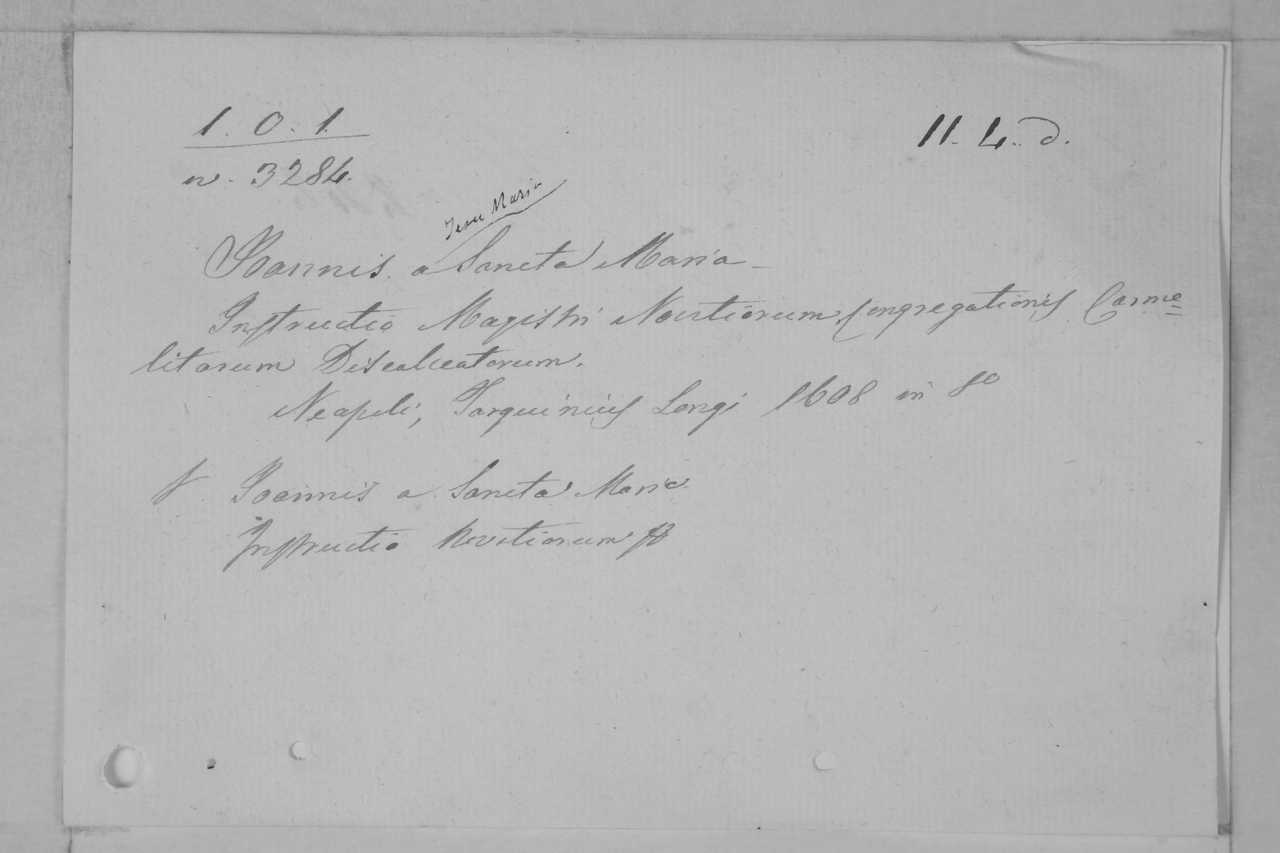 1. 0. 1.
n. 3284.
11. 4. d.
Jesu Maria
Joannis a Sancta Maria
Instructio Magistri Novitiorum Congregationis Carme=
litarum Discalceatorum.
Neapoli, Tarquinius Longi 1608 in 8º
Joannis a Sancta Maria
Instructio Novitiorum